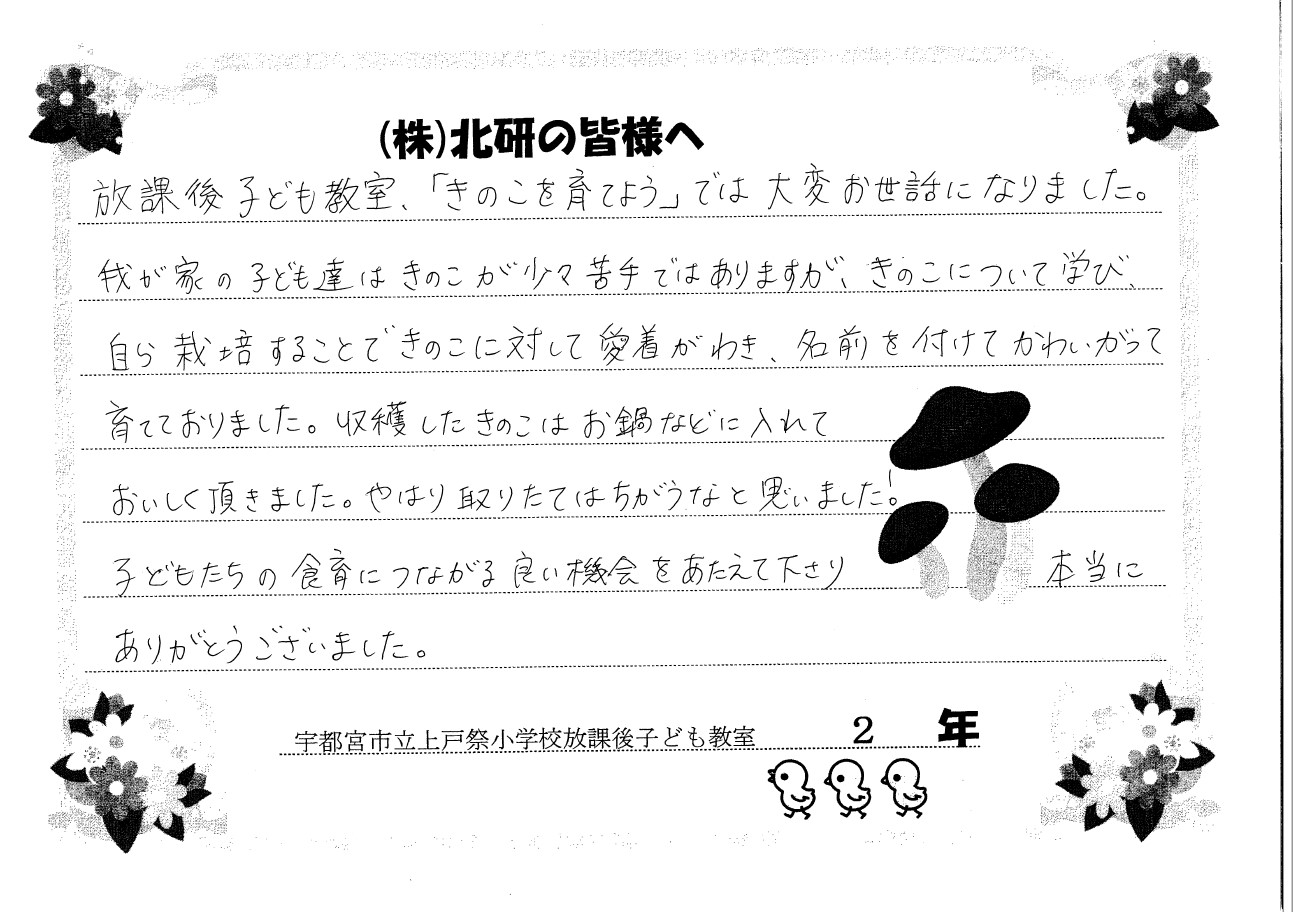 (株)北研の皆様へ
放課後子ども教室、「きのこを育てよう」では大変お世話になりました。
我が家の子ども達はきのこが少々苦手ではありますが、きのこについて学び、
自ら栽培することできのこに対して愛着がわき、名前を付けてかわいがって
育てておりました。収穫したきのこはお鍋などに入れて
おいしく頂きました。やはり取りたてはちがうなと思いました!
子どもたちの食育につながる良い機会をあたえて下さり 本当に
ありがとうございました。
宇都宮市立上戸祭小学校放課後子ども教室 2 年